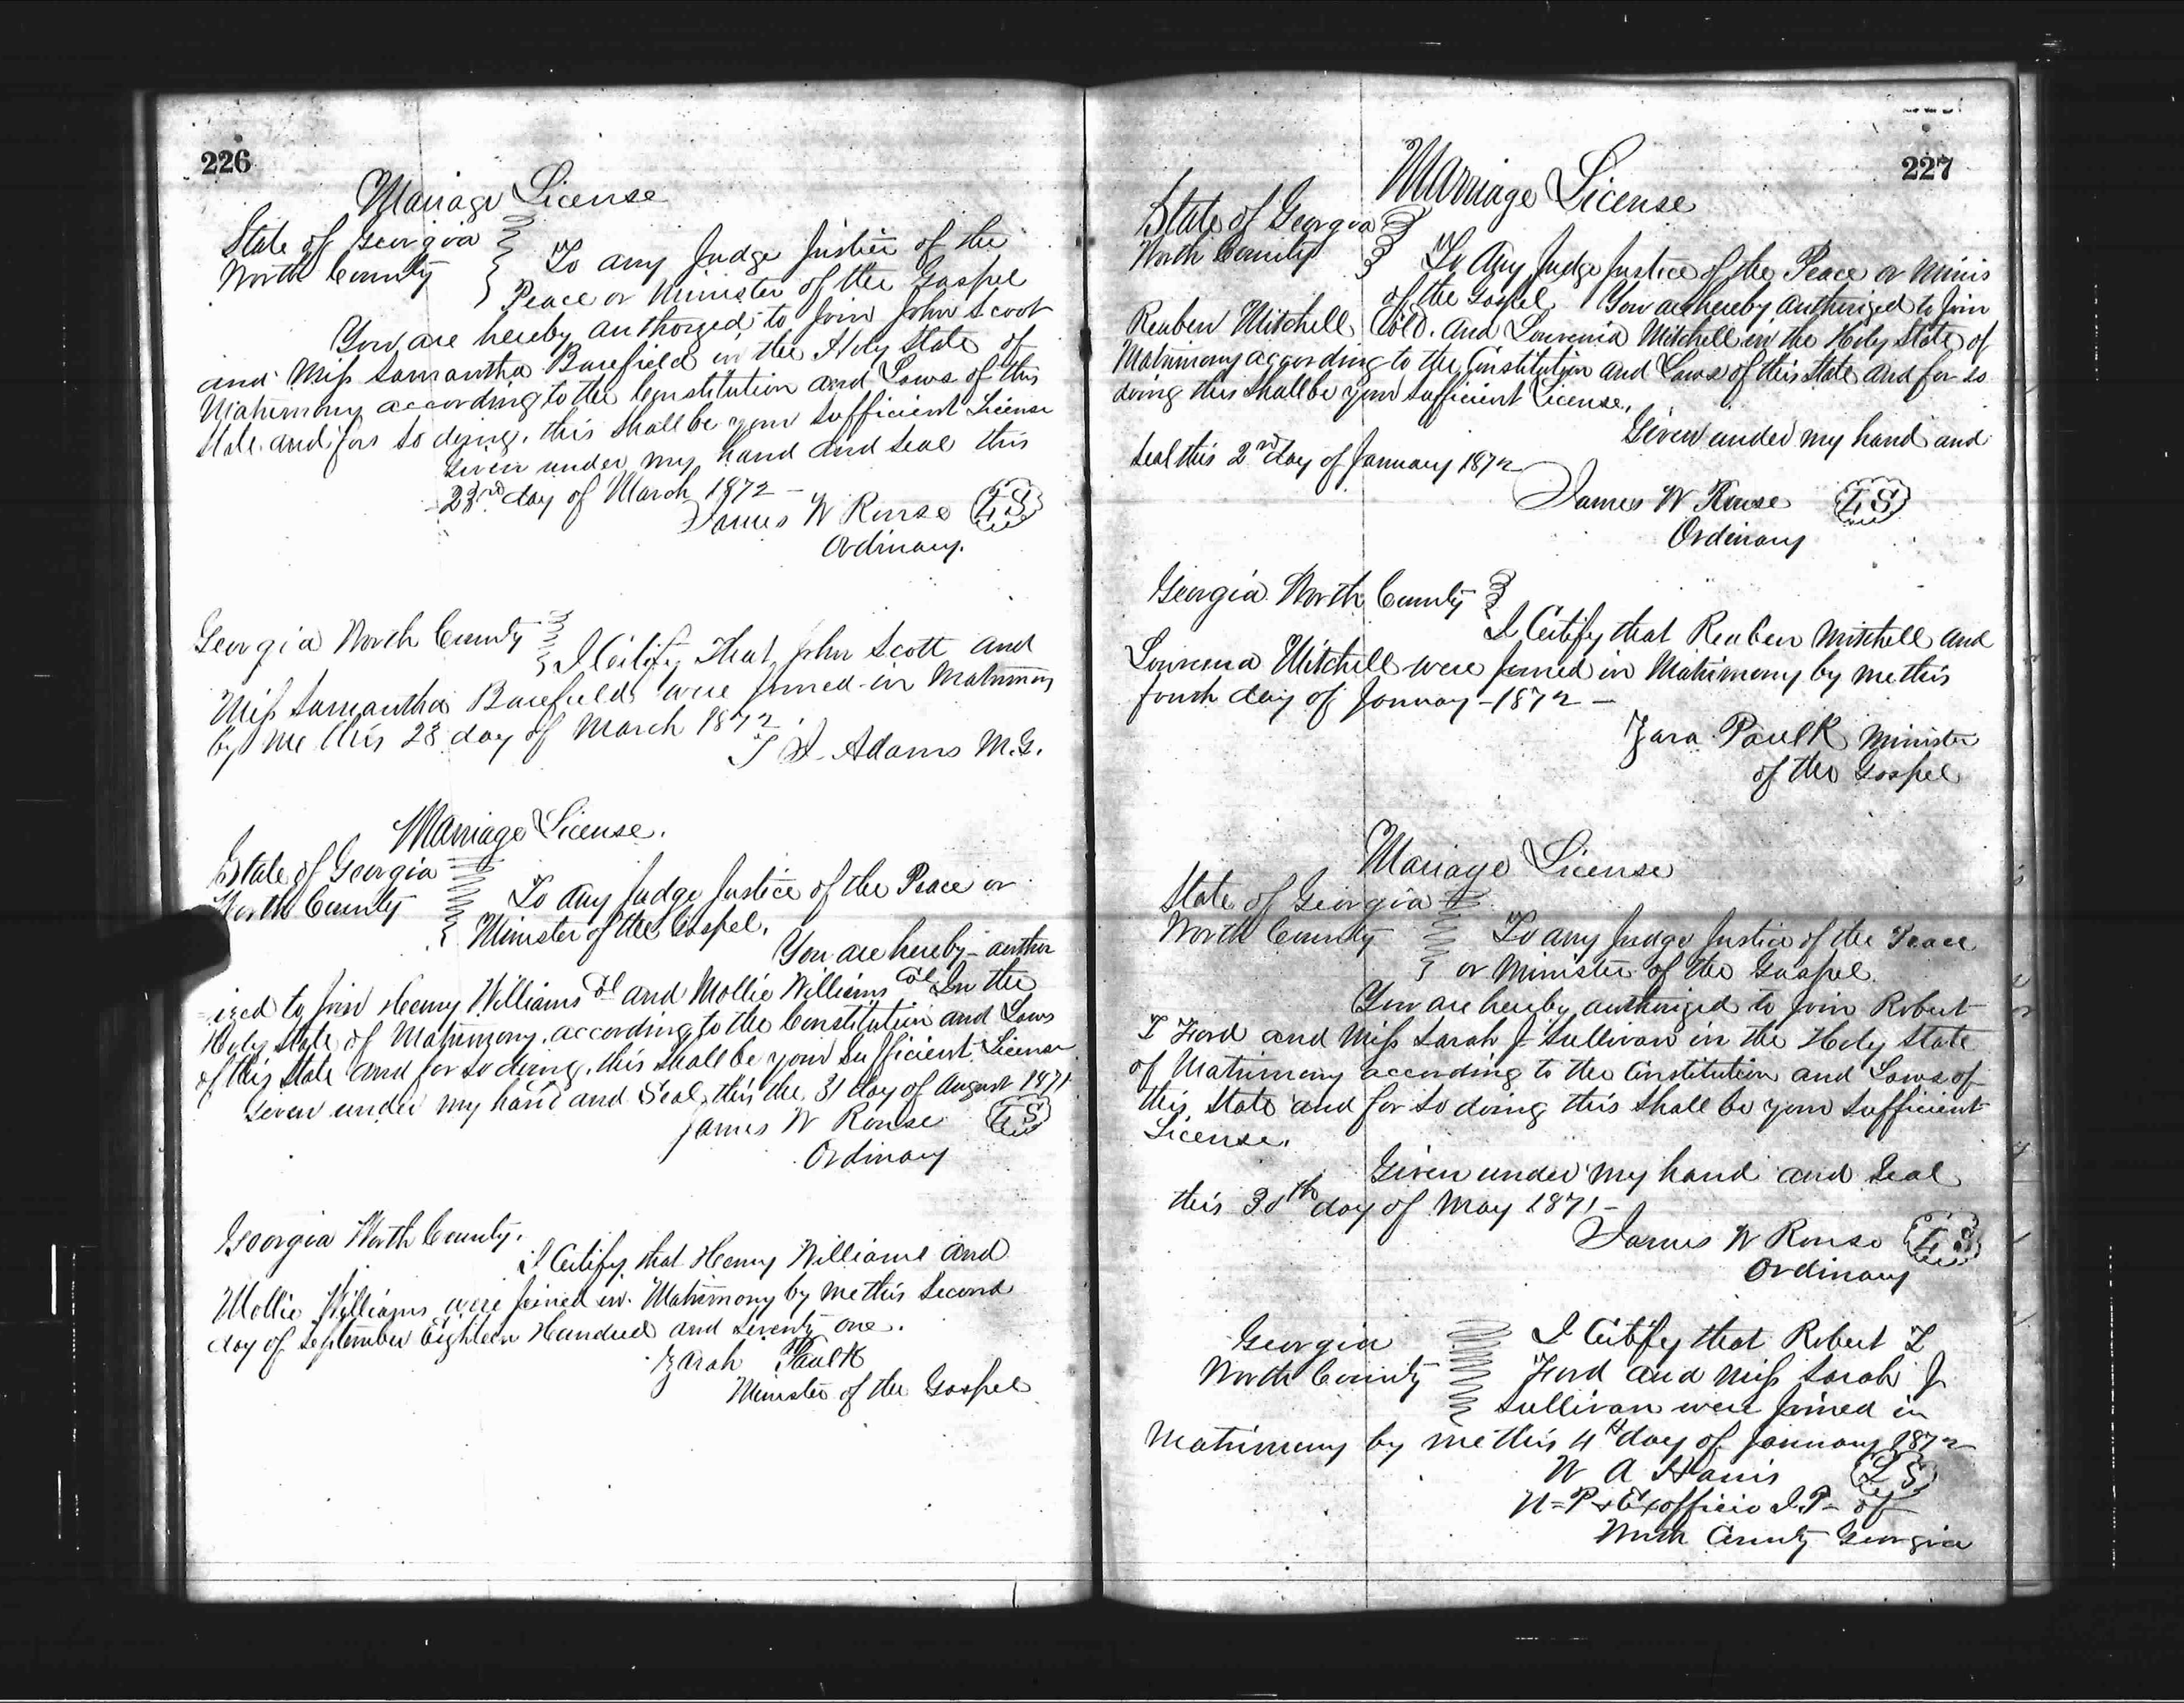 226
Mariage License
State of Georgia
Worth County
To any Judge Justice of the
Peace or Minister of the Gospel
You are hereby authorged to join John Scoot
and Miss Samantha Barefield in the Holy State of
Matrimony according to the Constitution and Laws of this
State and for so doing, this shall be your sufficient License
Given under my hand and seal this
23rd day of March 1872 -
James W Rouse L S
Ordinary.
Georgia Worth County
I Certify That John Scott and
Miss Samantha Barefield were joined in Matrimony
by me this 28 day of March 1872
Adams M.G.
Marriage License.
State of Georgia
Worth County
To any Judge Justice of the Peace or
Minister of the Gospel.
You are hereby author
=ized to join Henry Williams Col and Mollie Williams Col In the
Holy State of Matrimony, according to the Constitution and Laws
of this State and for so doing, this shall be your Sufficient License
Given under my hand and Seal, this the 31 day of August 1871
James W Rouse L S
Ordinary
Georgia Worth County.
I Certify that Henry Williams and
Mollie Williams were joined in Matrimony by me this Second
day of September Eighteen Hundred and seventy one.
Zarah Paulk
Minister of the Gospel
227
Marriage License
State of Georgia
Worth County
To Any Judge Justice of the Peace or Minis
of the Gospel You are hereby authorized to join
Reuben Mitchell Cold. and Lourenia Mitchell in the Holy State of
Matrimony according to the Constitution and Laws of this State and for so
doing this shall be your sufficient License.
Given under my hand and
seal this 2nd day of January 1872
James W Rouse L S
Ordinary
Georgia Worth County
I Certify that Reuben Mitchell and
Lourena Mitchell were Joined in Matrimony by me this
fourth day of January - 1872 -
Zara Paulk Minister
of the Gospel
Mariage License
State of Georgia
Worth County
To any Judge Justice of the Peace
or Minister of the Gospel.
You are hereby authorized to join Robert
T Ford and Miss Sarah J Sullivan in the Holy State
of Matrimony according to the Constitution and Laws of
this State and for so doing this shall be your sufficient
License.
Given under my hand and Seal
this 30th day of May 1871 -
James W Rouse L S
Ordinary
Georgia
Worth County
I Certify that Robert T
Ford and Miss Sarah J
Sullivan were joined in
Matrimony by me this 4th day of January 1872
W A Harris L S
N=P & Exofficio J.P- of
Worth County Georgia